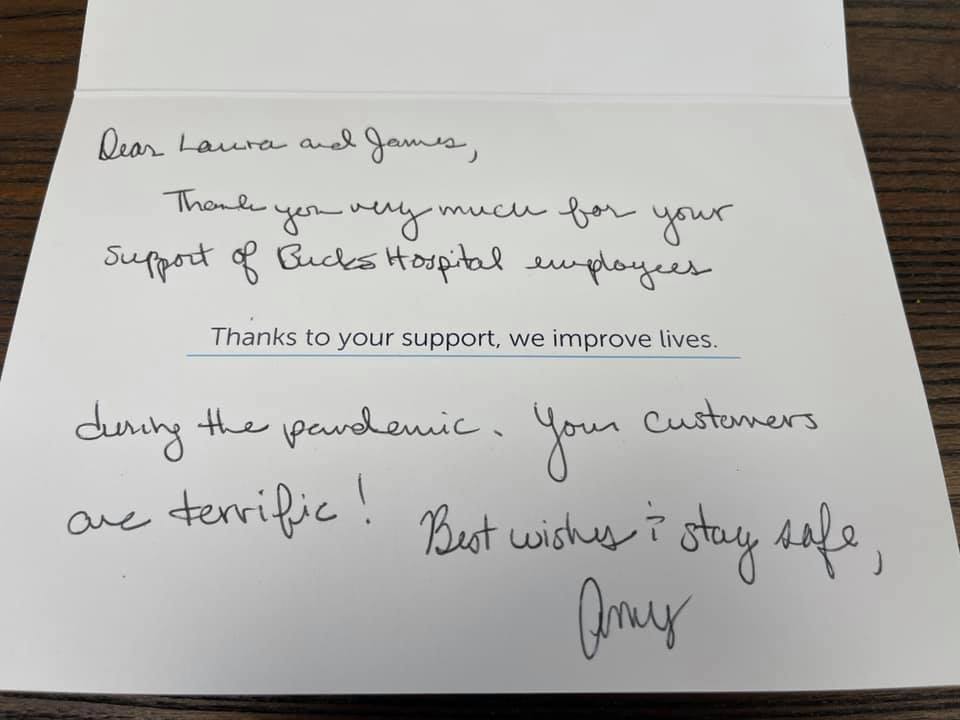 Dear Laura and James,
Thank you very much for your
support of Bucks Hospital employees
Thanks to your support, we improve lives.
during the pandemic. Your customers
are terrific!
Best wishes & stay safe,
Amy